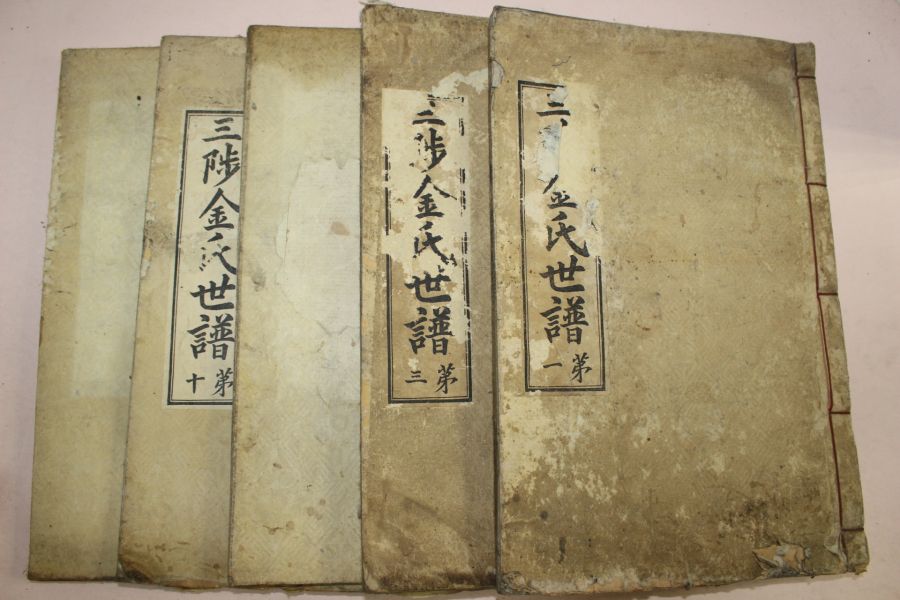 三陟金氏世譜
第十
三陟金氏世譜
第三
三 金氏世譜
第一